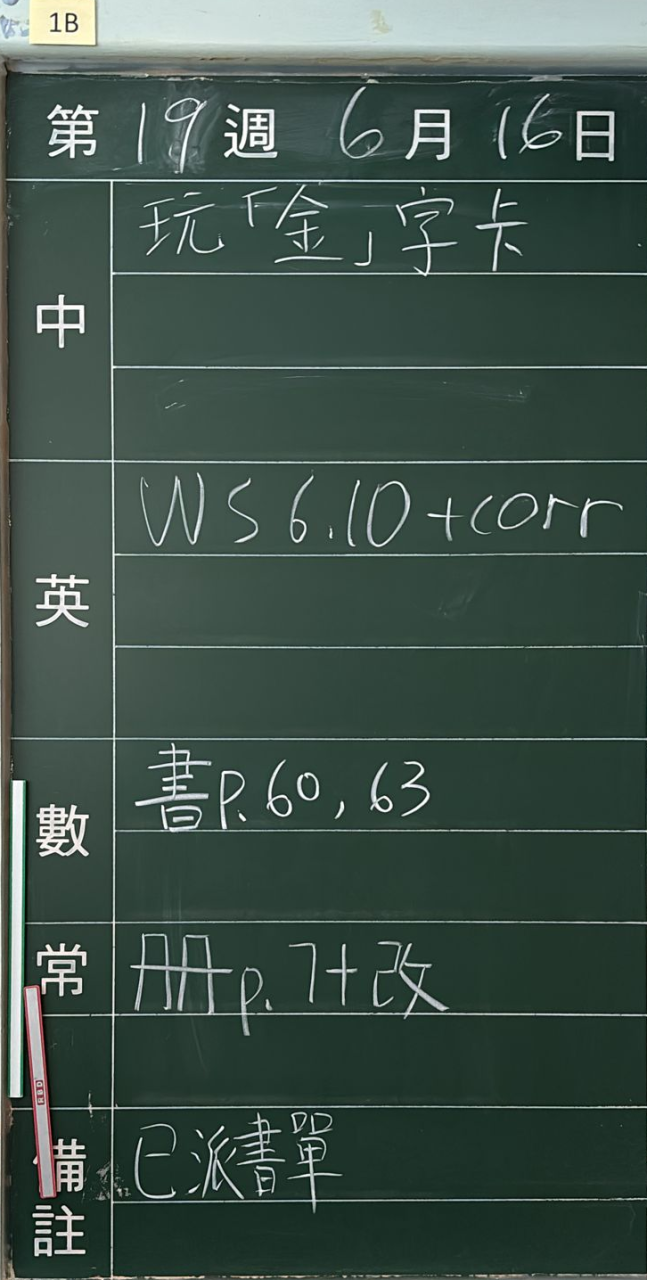 1B
第19週 6月16日
中
玩「金」字卡
英
WS 6.10 +corr
數
書p.60, 63
常
冊p.7+改
備註
已派書單